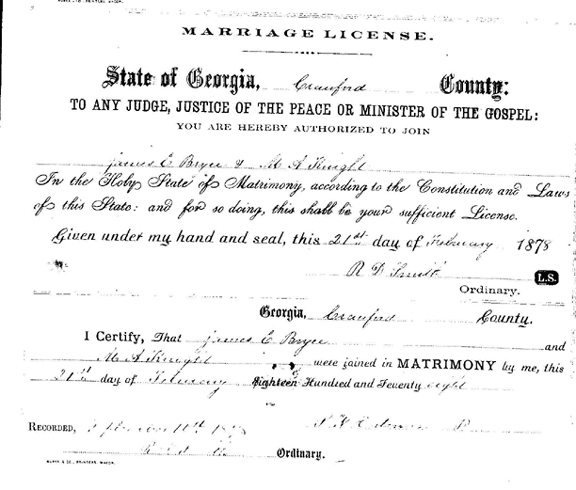 MARRIAGE LICENSE.
State of Georgia, Crawford County:
TO ANY JUDGE, JUSTICE OF THE PEACE OR MINISTER OF THE GOSPEL:
YOU ARE HEREBY AUTHORIZED TO JOIN
James E Bryce & M A Knight
In the Holy State of Matrimony, according to the Constitution and Laws
of this State: and for so doing, this shall be your sufficient License.
Given under my hand and seal, this 21st day of February 1878
R D Smith L.S.
Ordinary.
Georgia, Crawford County.
I Certify, That James E Bryce and
M A Knight were joined in MATRIMONY by me, this
21st day of February Eighteen Hundred and Seventy eight
RECORDED,
Ordinary.